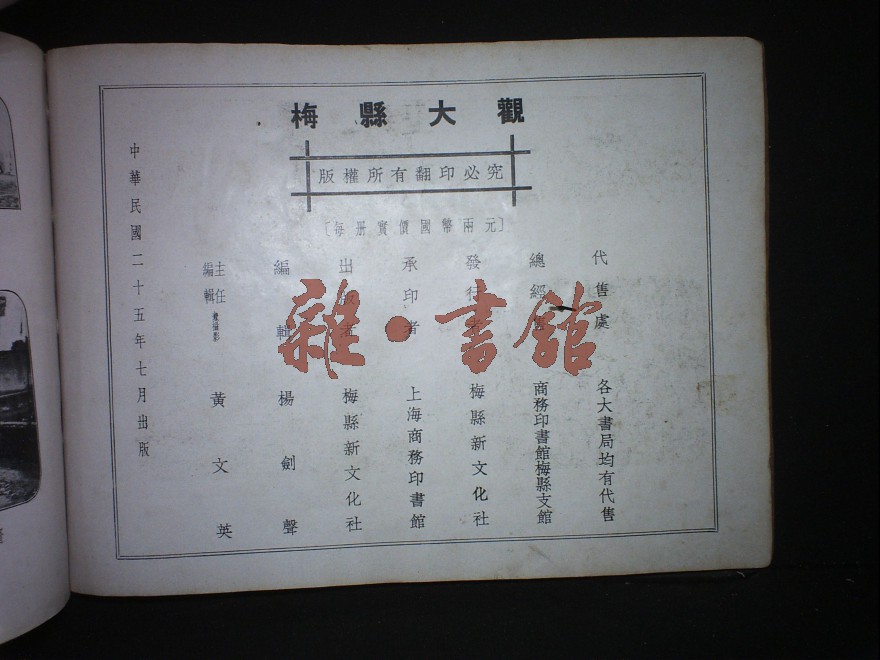 梅縣大觀
版權所有翻印必究
〔每册實價國幣兩元〕
中華民國二十五年七月出版
主任編輯兼攝影 黃文英
編輯 楊劍聲
出版者 梅縣新文化社
承印者 上海商務印書館
發行者 梅縣新文化社
總經售 商務印書館梅縣支館
代售處 各大書局均有代售
雜·書館